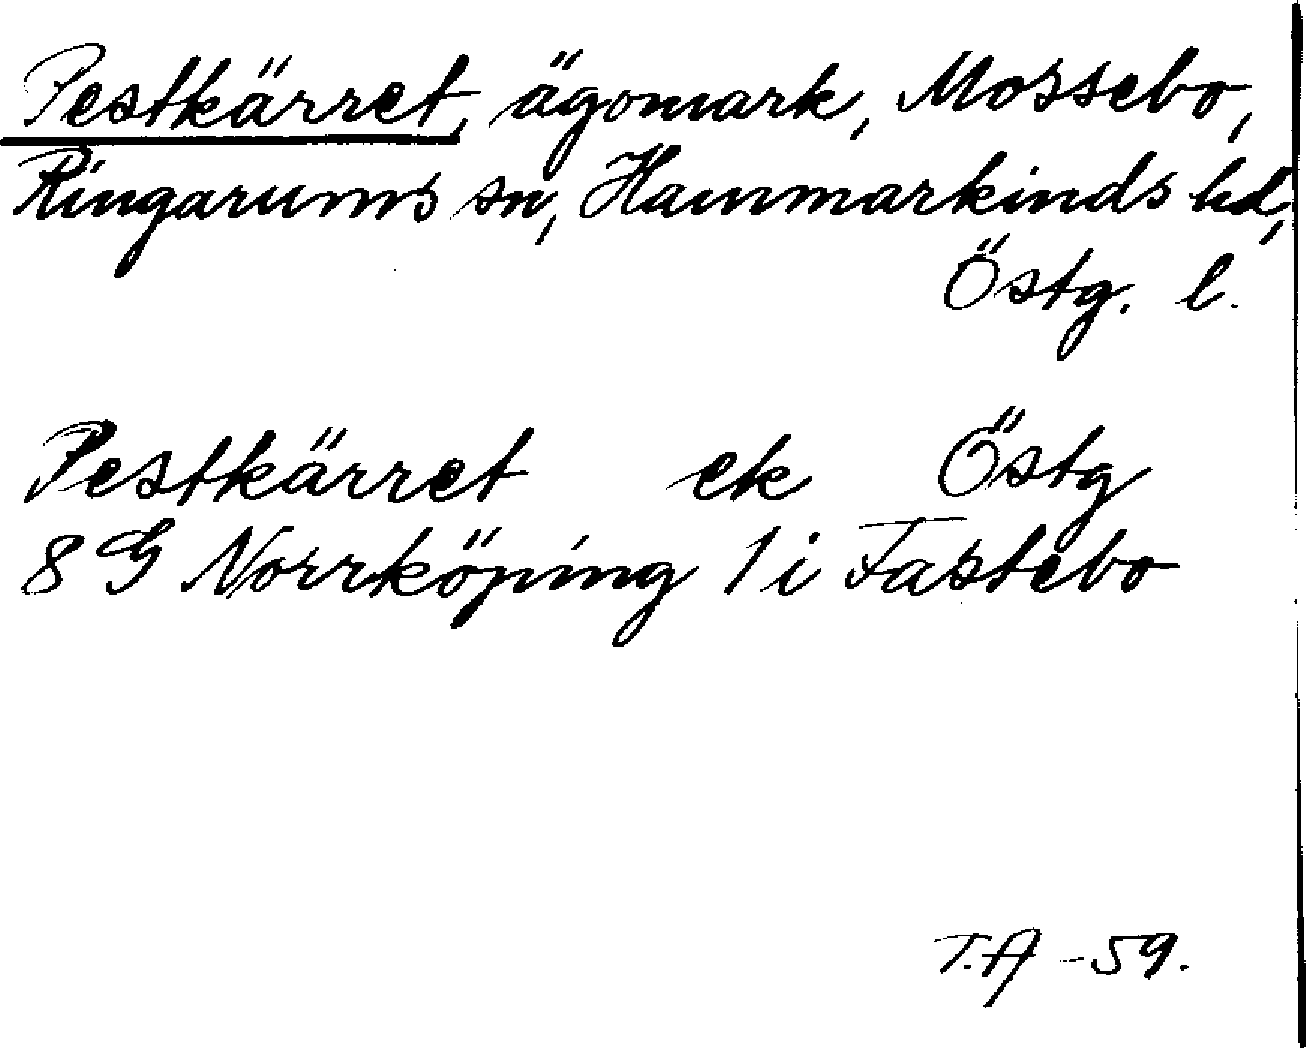 Pestkärret, ägomark, Mossebo,
Ringarums sn, Hammarkinds hd,
Östg. l.
Pestkärret ek Östg
8 G Norrköping 1 i Fastebo
T.A -59.